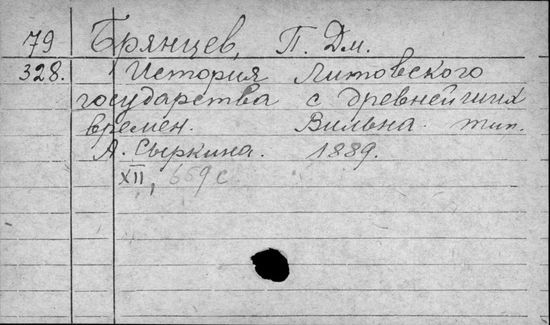 79 Брянцев, П. Дм.
328. История Литовского
государства с древнейших
времен. Вильна. тип.
А. Сыркина. 1889.
XII, 659 с.